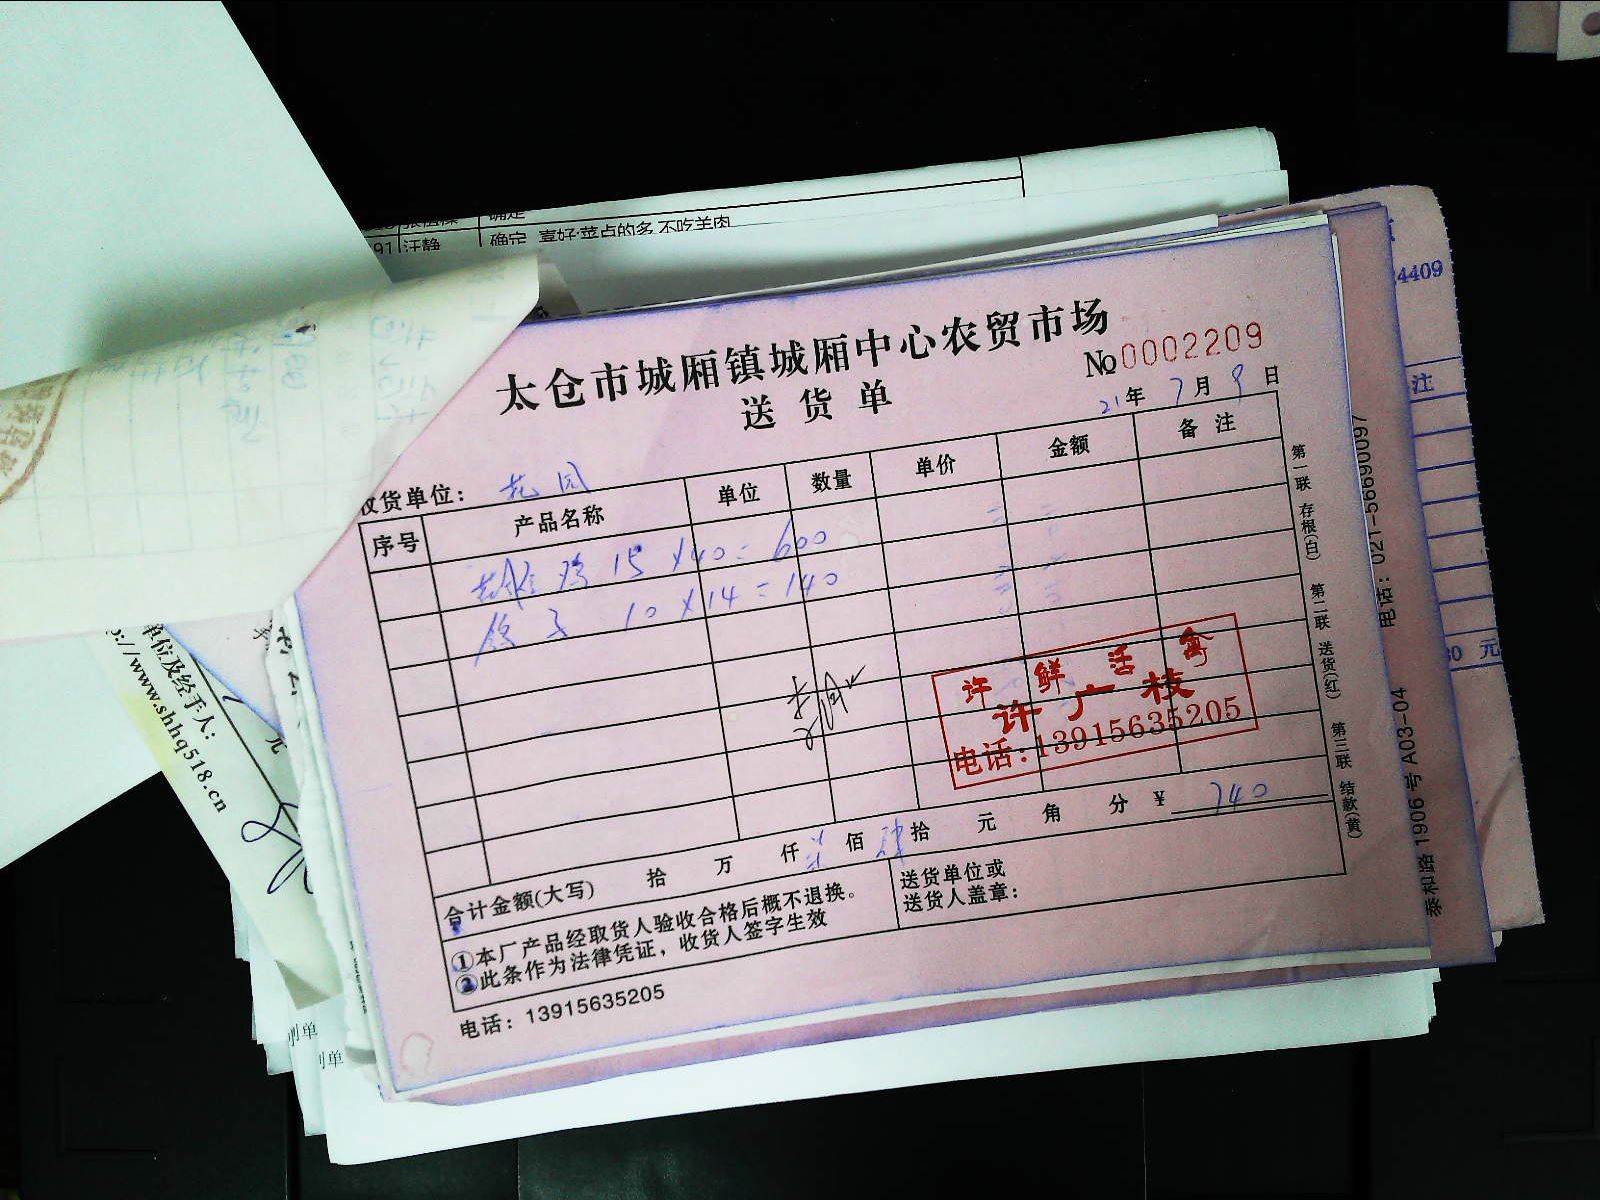 91 汪静 确定 喜好:菜点的多,不吃羊肉
4409
太仓市城厢镇城厢中心农贸市场
№0002209
送货单
21年7月9日
收货单位：花园
序号 产品名称 单位 数量 单价 金额 备注
雄鸡 15×40=600
鸽子 10×14=140
许鲜活禽
许广枝
电话:13915635205
合计金额(大写) 拾 万 仟 柒佰 肆拾 元 角 分 ¥ 740
①本厂产品经取货人验收合格后概不退换。
②此条作为法律凭证，收货人签字生效
送货单位或
送货人盖章：
电话：13915635205
第一联 存根(白) 第二联 送货(红) 第三联 结款(黄)
注
元
电话：021-56690097
泰和路1906号A03-04
单位及经手人：
p://www.shhq518.cn
元
别单
别单